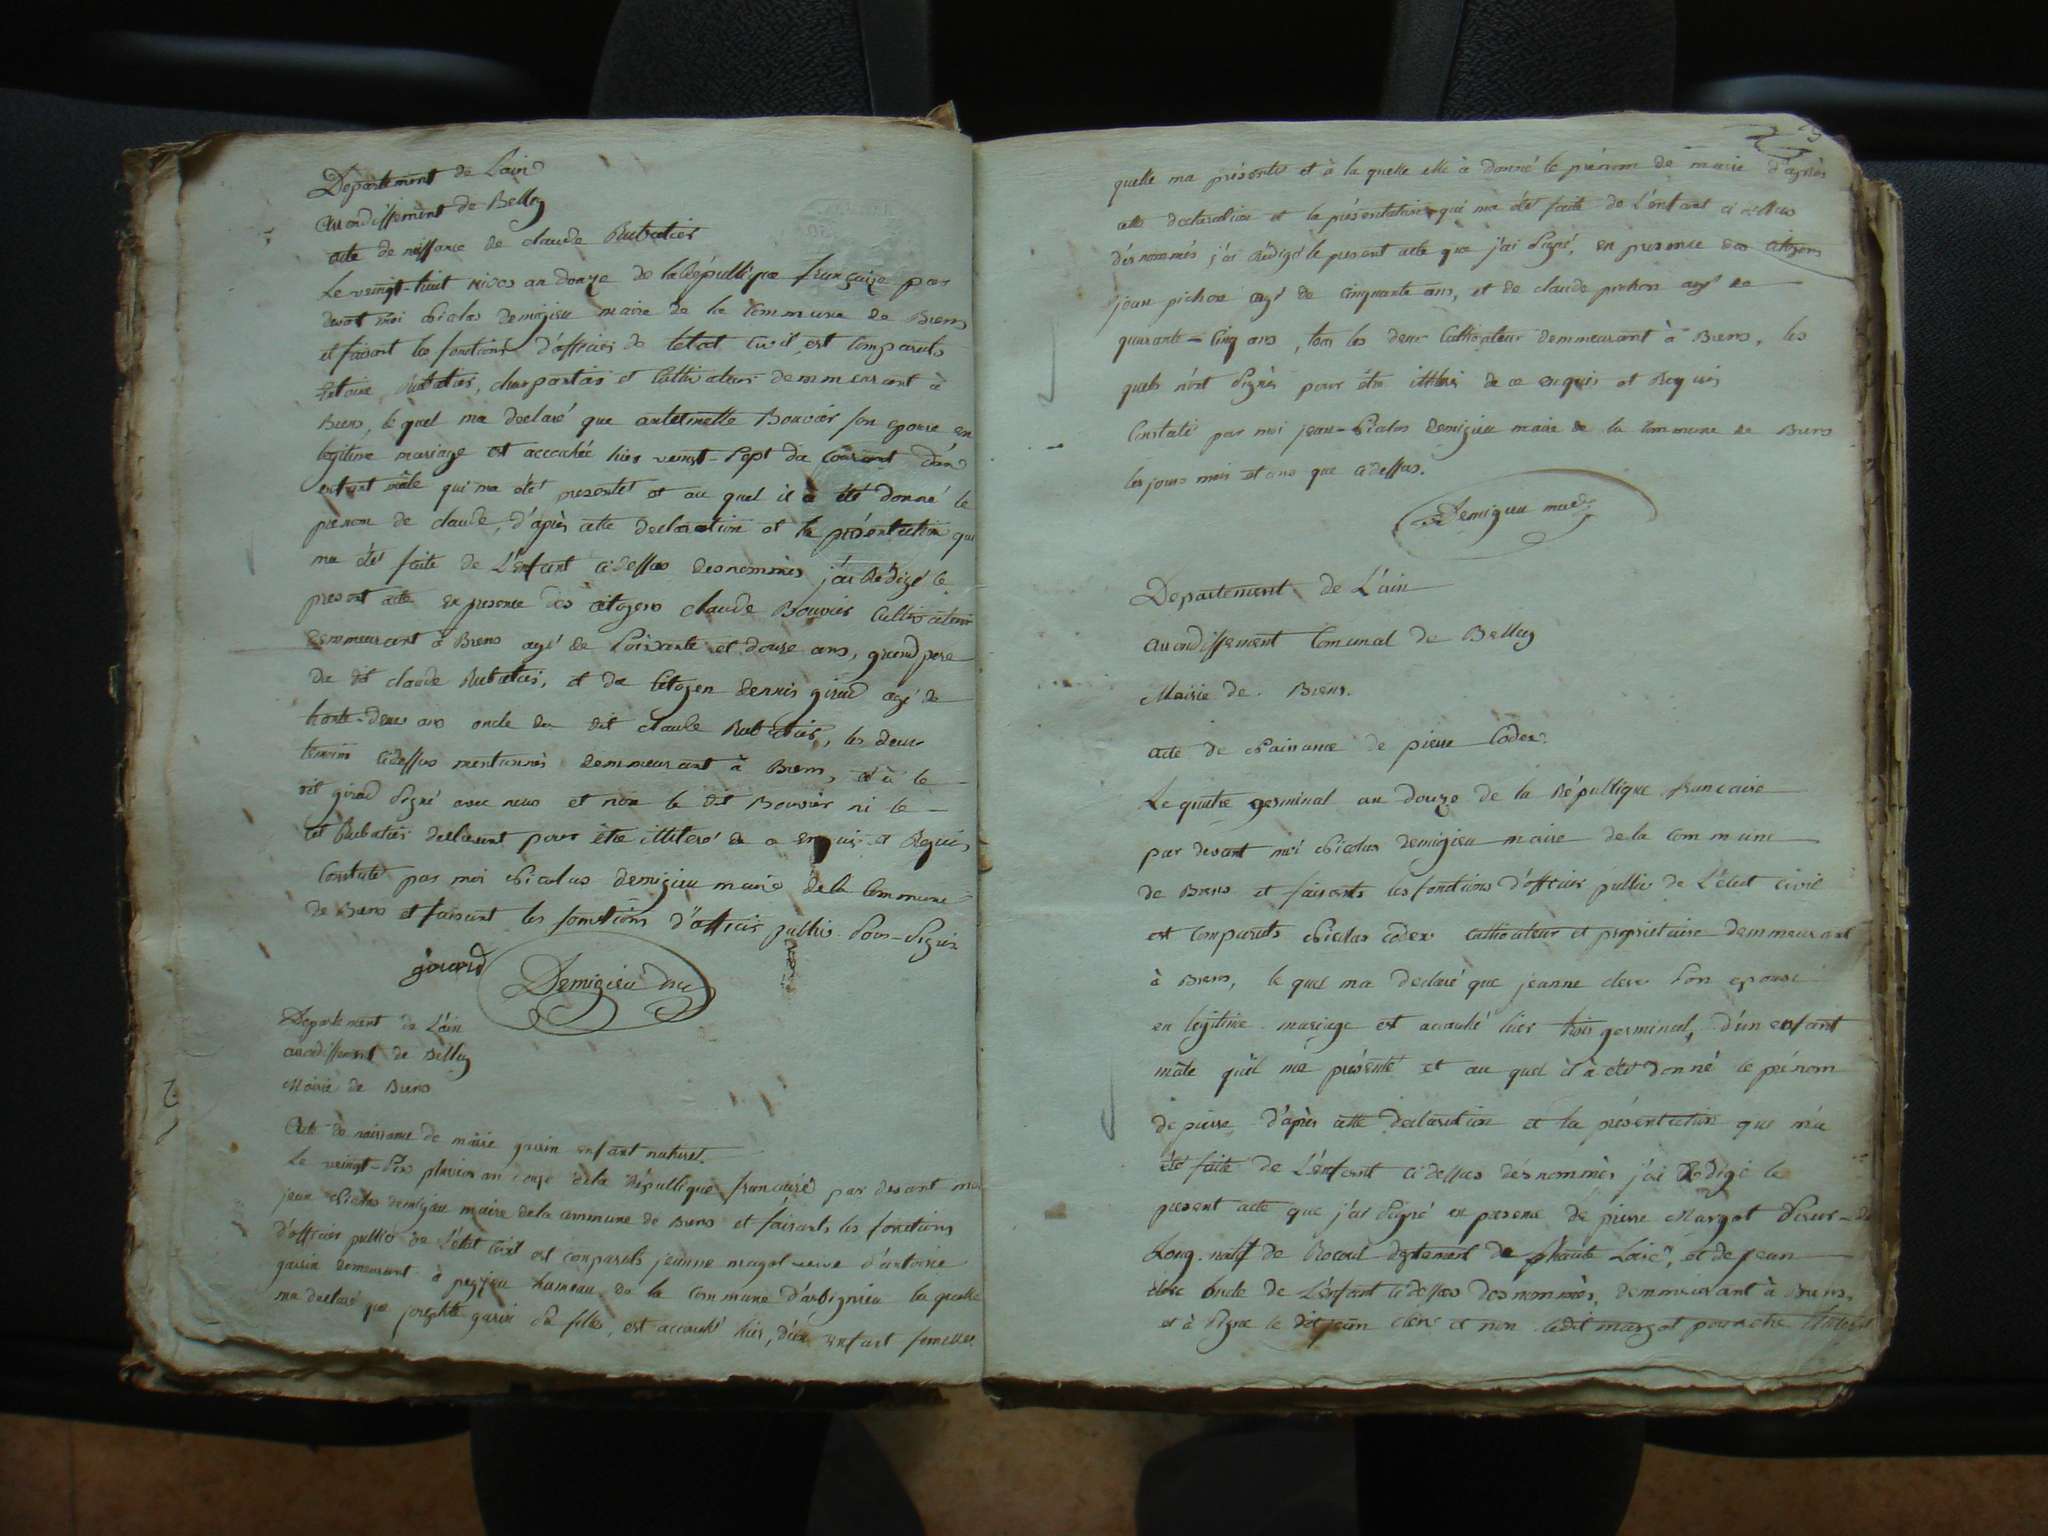 Departement de Lain
arrondissement de Belley
acte de naissance de claude Rubatier
Le veingt-huit nivos an douze de la République françaize par
devant moi Nicolas Demigieu maire de la Commune de Brens
et faisant les fonctions d'officier de letat Civil, est Comparuts
Rubatier, charpantier et Cultivateur demmeurant à
Brens, le quel ma declaré que antoinette Bouvier son epouse en
légitime mariage est accouchée hier veingt-sept du Courant d'un
enfant mâle qui ma été presenté et au quel il a été donné le
prenom de claude, d'après cette declaration et la présentation qui
ma été faite de L'enfant cidessus desnommés j'ai Rédigé le
present acte en presence des citoyens claude Bouvier Cultivateur
demmeurant à Brens agé de soixante et douze ans, grand pere
du dit claude Rubatier, et du citoyen dennis girad agé de
trante-deux ans oncle du dit claude Rubatier, les deux
temoins cidessus mentionnés demmeurant à Brens, et à le
dit girad signé avec nous et non le dit Bouvier ni le
dit Rubatier declarent pour être illiteré de ce enquis et Requis
Constaté par moi Nicolas demigieu maire de la Commune
de Brens et faisant les fonctions d'officier public sous-signés
girard Demigieu
Departement de L'ain
arrondissement de Belley
Mairie de Brens
Acte de naissance de marie gurin enfant naturel.
Le veingt-six pluvios an douze de la République françaize par devant moi
jean Nicolas demigieu maire de la commune de Brens et faisants les fonctions
d'officier public de L'état Civil est comparuts jeanne magot veuve d'antoine
gurin demeurant à peyzieu hameau de la Commune d'arbignieu la quelle
ma declaré que josephte gurin sa fille, est accouché hier, d'un enfant femelle
quelle ma présenté et à la quelle elle à donné le prénom de marie d'après
cette declaration et la présentation qui ma été faite de L'enfant ci dessus
désnommés j'ai Rédigé le present acte que j'ai signé, en presence des citoyens
jean pichon agé de cinquante ans, et de claude prohon agé de
quarante-cinq ans, tous les deux Cultivateur demmeurant à Brens, les
quels n'ont signés pour être illiteré de ce enquis et Requis
Constaté par moi jean-Nicolas demigieu maire de la Commune de Brens
les jours mois et ans que cidessus.
Demigieu
Departement de L'ain
arrondissement Comunal de Belley
Mairie de Brens.
acte de Naissance de pierre Coder.
Le quatre germinal an douze de la République francaise
par devant moi Nicolas demigieu maire de la Commune
de Brens et faisants les fonctions d'officier public de L'état civil
est Comparuts Nicolas coder cultivateur et proprietaire demmeurant
à Brens, le quel ma declaré que jeanne clerc son epouse
en légitime mariage est accouché hier trois germinal, d'un enfant
mâle qu'il ma présenté et au quel il à été donné le prénom
de pierre, d'après cette déclaration et la présentation qui m'a
été faite de L'enfant cidessus désnommés j'ai Rédigé le
present acte que j'ai signé en presence de pierre Margot sieur de
Long natif de deptement de phaute Loire, et de jean
clerc oncle de L'enfant cidessus desnommés, demmeurant à Brens,
et à signé le dit jean clerc et non ledit margot pour être illiteré